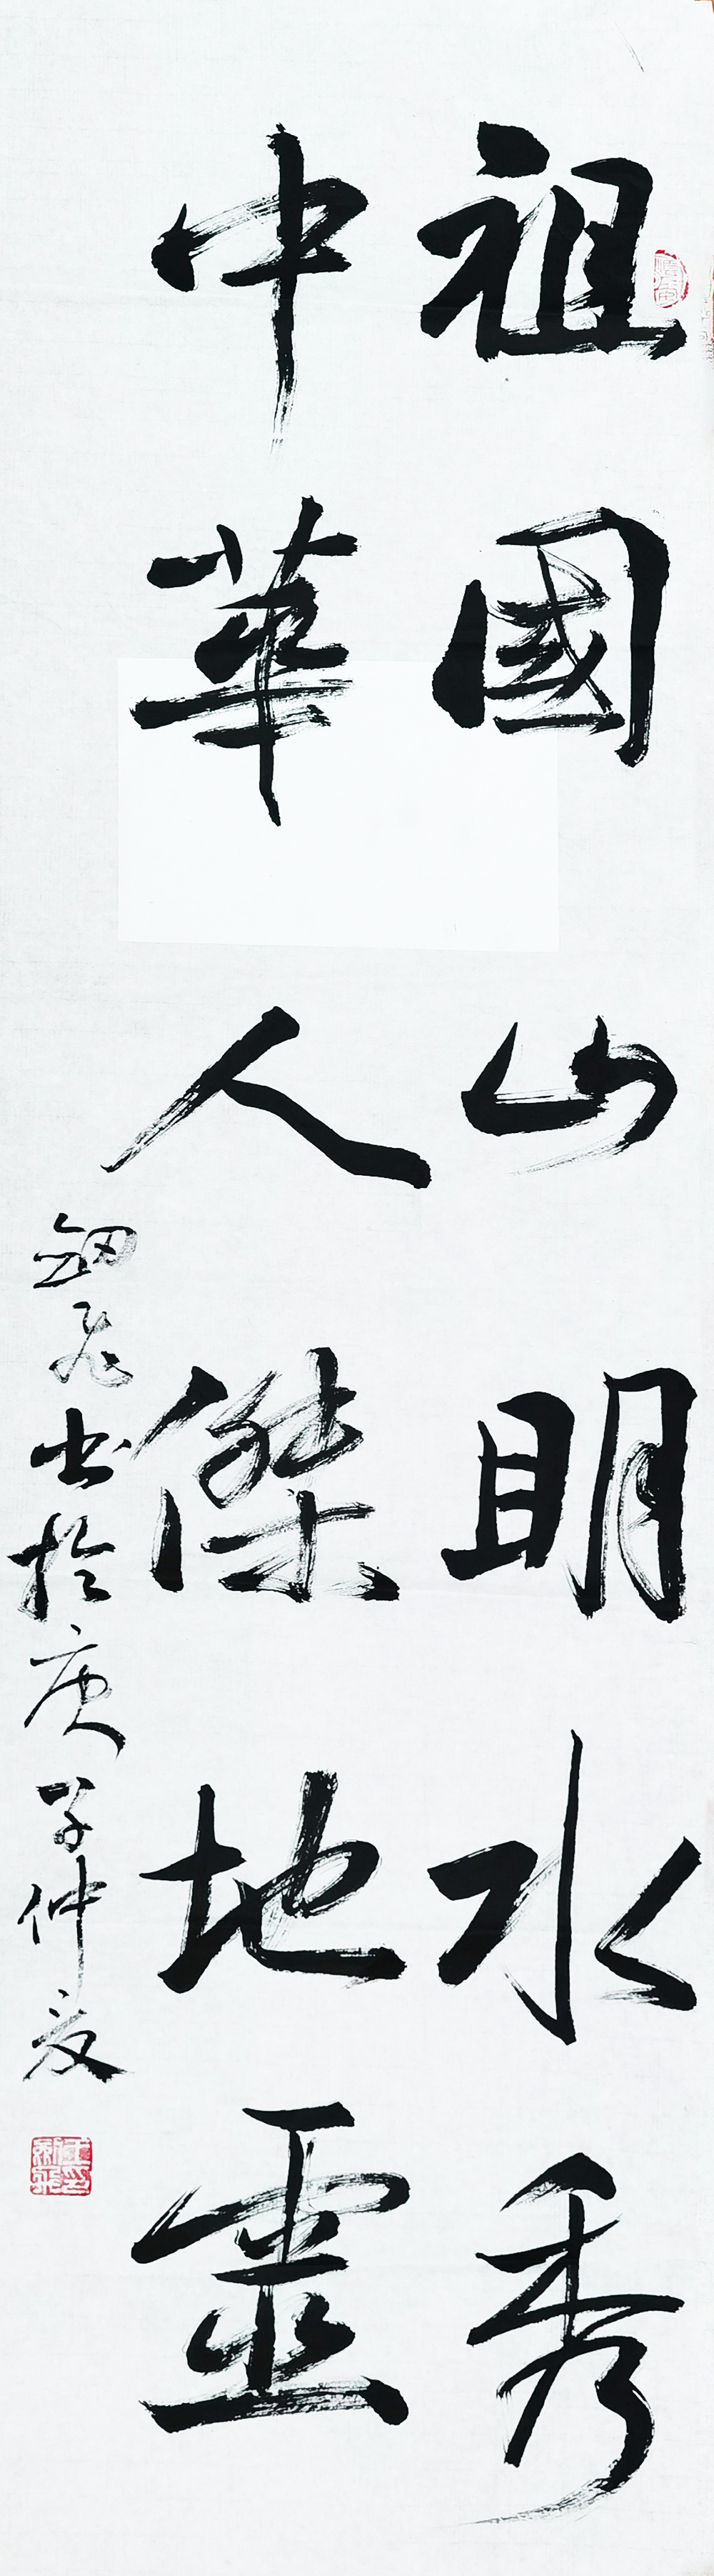 祖國山明水秀
中華人傑地靈
劍飛书於庚子仲夏